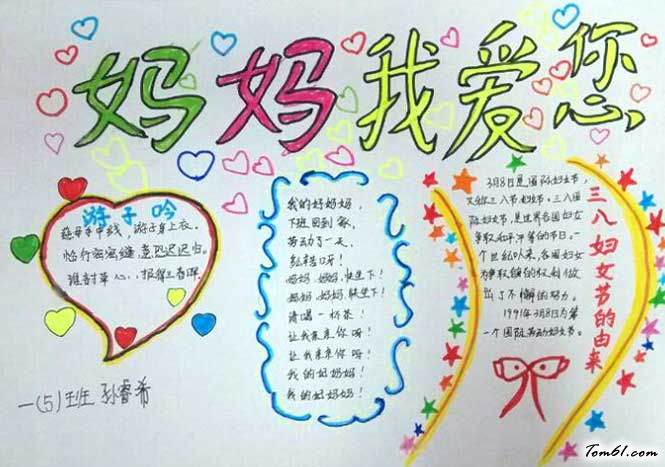 妈妈我爱您
游子吟
慈母手中线,游子身上衣。
临行密密缝,意恐迟迟归。
谁言寸草心,报得三春晖。
一(5)班 孙睿希
我的好妈妈,
下班回到家,
劳动了一天,
多辛苦呀!
妈妈,妈妈,快坐下!
妈妈,妈妈,快坐下!
请喝一杯茶!
让我亲亲你呀!
让我亲亲你呀!
我的好妈妈!
我的好妈妈!
三八妇女节的由来
3月8日是国际妇女节,
际妇女节,是世界各国妇女
争取和平平等的节日。一
个世纪以来,各国妇女
为争取她们的权利做
出了不懈的努力。
1991年3月8日为第
一个国际劳动妇女节。
Tom61.com